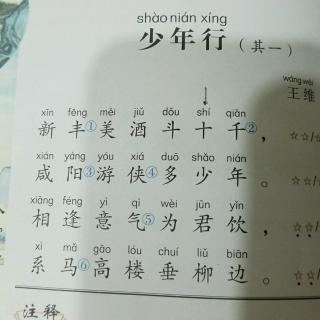 shào nián xíng
少年行（其一）
wáng wéi
王维
xīn fēng měi jiǔ dǒu shí qiān
新丰①美酒斗十千②，
xián yáng yóu xiá duō shào nián
咸阳③游侠④多少年。
xiāng féng yì qì wèi jūn yǐn
相逢意气⑤为君饮，
xì mǎ gāo lóu chuí liǔ biān
系马⑥高楼垂柳边。
注释